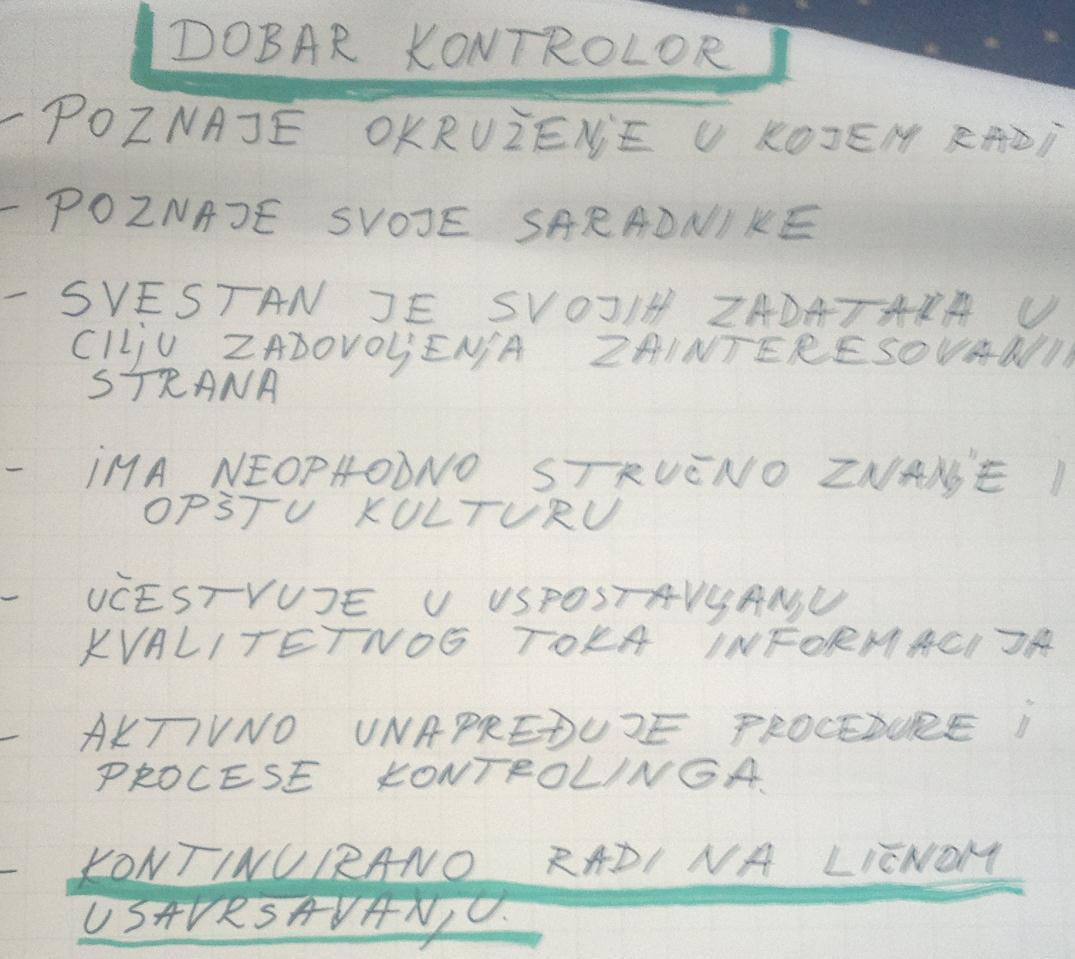 DOBAR KONTROLOR
- POZNAJE OKRUŽENJE U KOJEM RADI
- POZNAJE SVOJE SARADNIKE
- SVESTAN JE SVOJIH ZADATAKA U
CILJU ZADOVOLJENJA ZAINTERESOVANIH
STRANA
- IMA NEOPHODNO STRUČNO ZNANJE I
OPŠTU KULTURU
- UČESTVUJE U USPOSTAVLJANJU
KVALITETNOG TOKA INFORMACIJA
- AKTIVNO UNAPREĐUJE PROCEDURE I
PROCESE KONTROLINGA.
- KONTINUIRANO RADI NA LIČNOM
USAVRŠAVANJU.